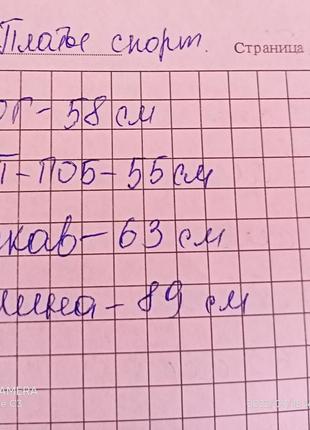 Платье спорт. Страница
ОГ - 58 см
Т - ПОБ - 55 см
кав - 63 см
лина - 89 см
AMERA
C3